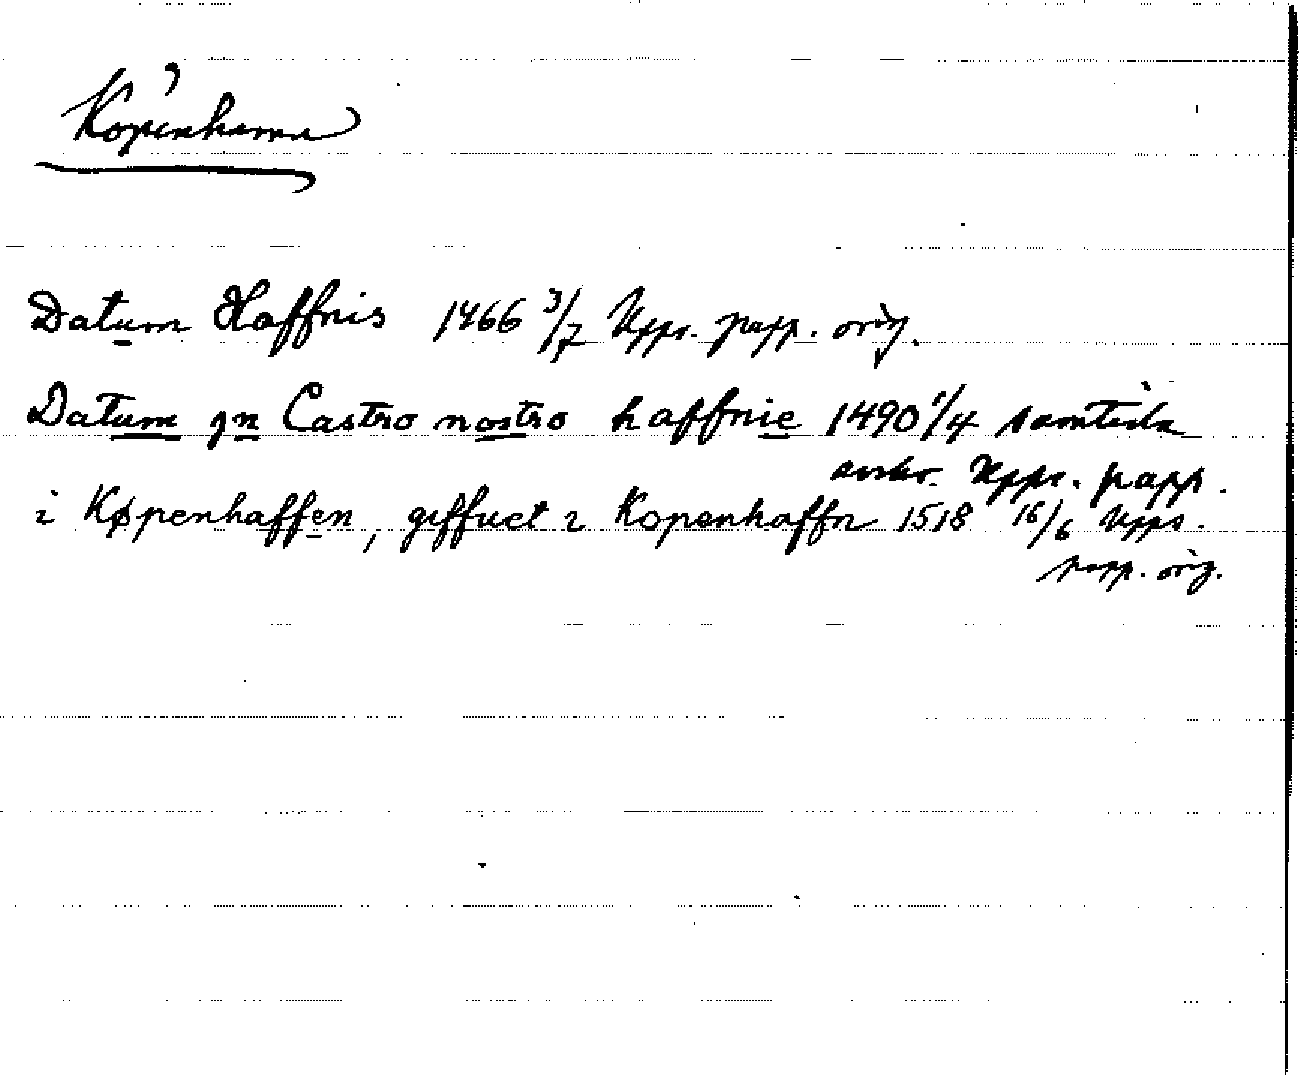 Köpenhamn
Datum Haffnis 1466 3/7 Upps. papp. orig.
Datum jn Castro nostro haffnie 1490 1/4 samtida
avskr. Upps. papp.
i Køpenhaffen, giffuet i Kopenhaffn 1518 16/6 Upps.
papp. orig.